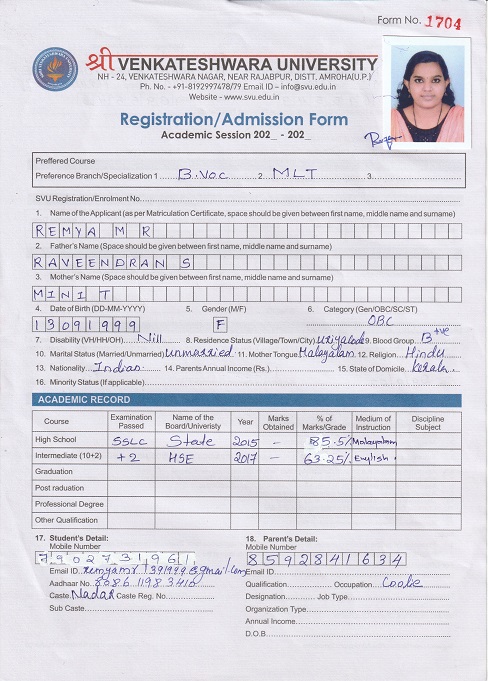 Form No. 1704
श्री VENKATESHWARA UNIVERSITY
NH - 24, VENKATESHWARA NAGAR, NEAR RAJABPUR, DISTT. AMROHA(U.P.)
Ph. No. - +91-8192997478/79 Email ID – info@svu.edu.in
Website - www.svu.edu.in
Registration/Admission Form
Academic Session 202_ - 202_
Preffered Course
Preference Branch/Specialization 1.... B.Voc .... 2. MLT .... 3.
SVU Registration/Enrolment No.
1. Name of the Applicant (as per Matriculation Certificate, space should be given between first name, middle name and surname)
REMYA M R
2. Father's Name (Space should be given between first name, middle name and surname)
RAVEENDRAN S
3. Mother's Name (Space should be given between first name, middle name and surname)
MINI T
4. Date of Birth (DD-MM-YYYY) 5. Gender (M/F) 6. Category (Gen/OBC/SC/ST)
13091999 F OBC
7. Disability (VH/HH/OH) Nill 8. Residence Status (Village/Town/City) 9. Blood Group B+ve
10. Marital Status (Married/Unmarried) unmarried 11. Mother Tongue Malayalam 12. Religion Hindu
13. Nationality Indian 14. Parents Annual Income (Rs.) 15. State of Domicile Kerala
16. Minority Status (If applicable)
ACADEMIC RECORD
Course Examination Passed Name of the Board/Univeristy Year Marks Obtained % of Marks/Grade Medium of Instruction Discipline Subject
High School SSLC State 2015 – 85.5% Malayalam
Intermediate (10+2) +2 HSE 2017 – 63.25% English
Graduation
Post raduation
Professional Degree
Other Qualification
17. Student's Detail: 18. Parent's Detail:
Mobile Number Mobile Number
7902731961 8592841634
Email ID Email ID
Aadhaar No. 8086 1198 3416 Qualification Occupation Coolie
Caste Nadar Caste Reg. No. Designation Job Type
Sub Caste Organization Type
Annual Income
D.O.B